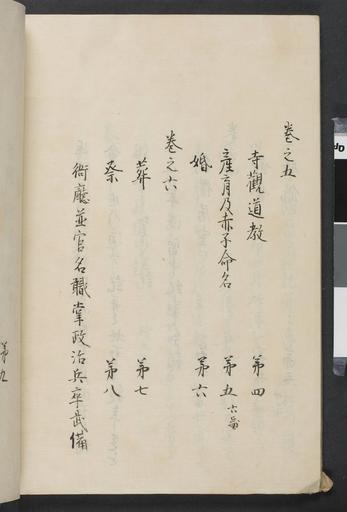 卷之五
寺觀道教 第四
産育及赤子命名 第五
婚 第六
卷之六
葬 第七
祭 第八
衙廳並官名職掌政治兵卒武備
第九